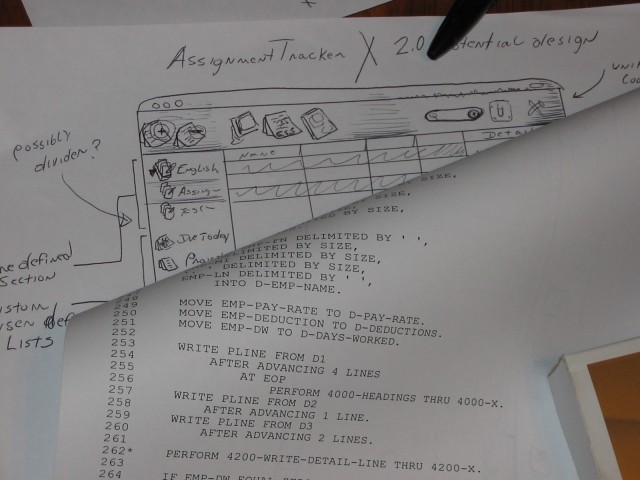 AssignmentTracker X 2.0 potential design
possibly
divider?
Name
Detai
English
Assign-
Due Today
defined
Section
Lists
SIZE,
BY SIZE,
DELIMITED BY ' ',
DELIMITED BY SIZE,
DELIMITED BY SIZE,
EMP-LN DELIMITED BY ' ',
INTO D-EMP-NAME.
249 MOVE EMP-PAY-RATE TO D-PAY-RATE.
250 MOVE EMP-DEDUCTION TO D-DEDUCTIONS.
251 MOVE EMP-DW TO D-DAYS-WORKED.
252
253 WRITE PLINE FROM D1
254 AFTER ADVANCING 4 LINES
255 AT EOP
256 PERFORM 4000-HEADINGS THRU 4000-X.
257 WRITE PLINE FROM D2
258 AFTER ADVANCING 1 LINE.
259 WRITE PLINE FROM D3
260 AFTER ADVANCING 2 LINES.
261
262* PERFORM 4200-WRITE-DETAIL-LINE THRU 4200-X.
263
264 IF EMP-DW EQUAL